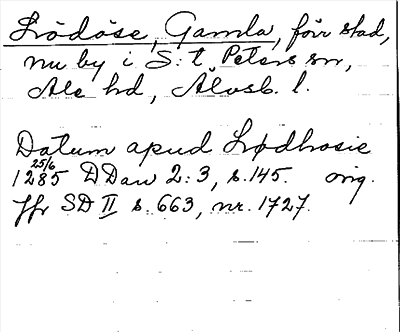 Lödöse, Gamla, förr stad,
nu by i S:t Peters sn,
Ale hd, Älvsb. l.
Datum apud Lødhosie
25/6
1285 DDan 2:3, s. 145. orig.
Jfr SD II s. 663, nr. 1727.